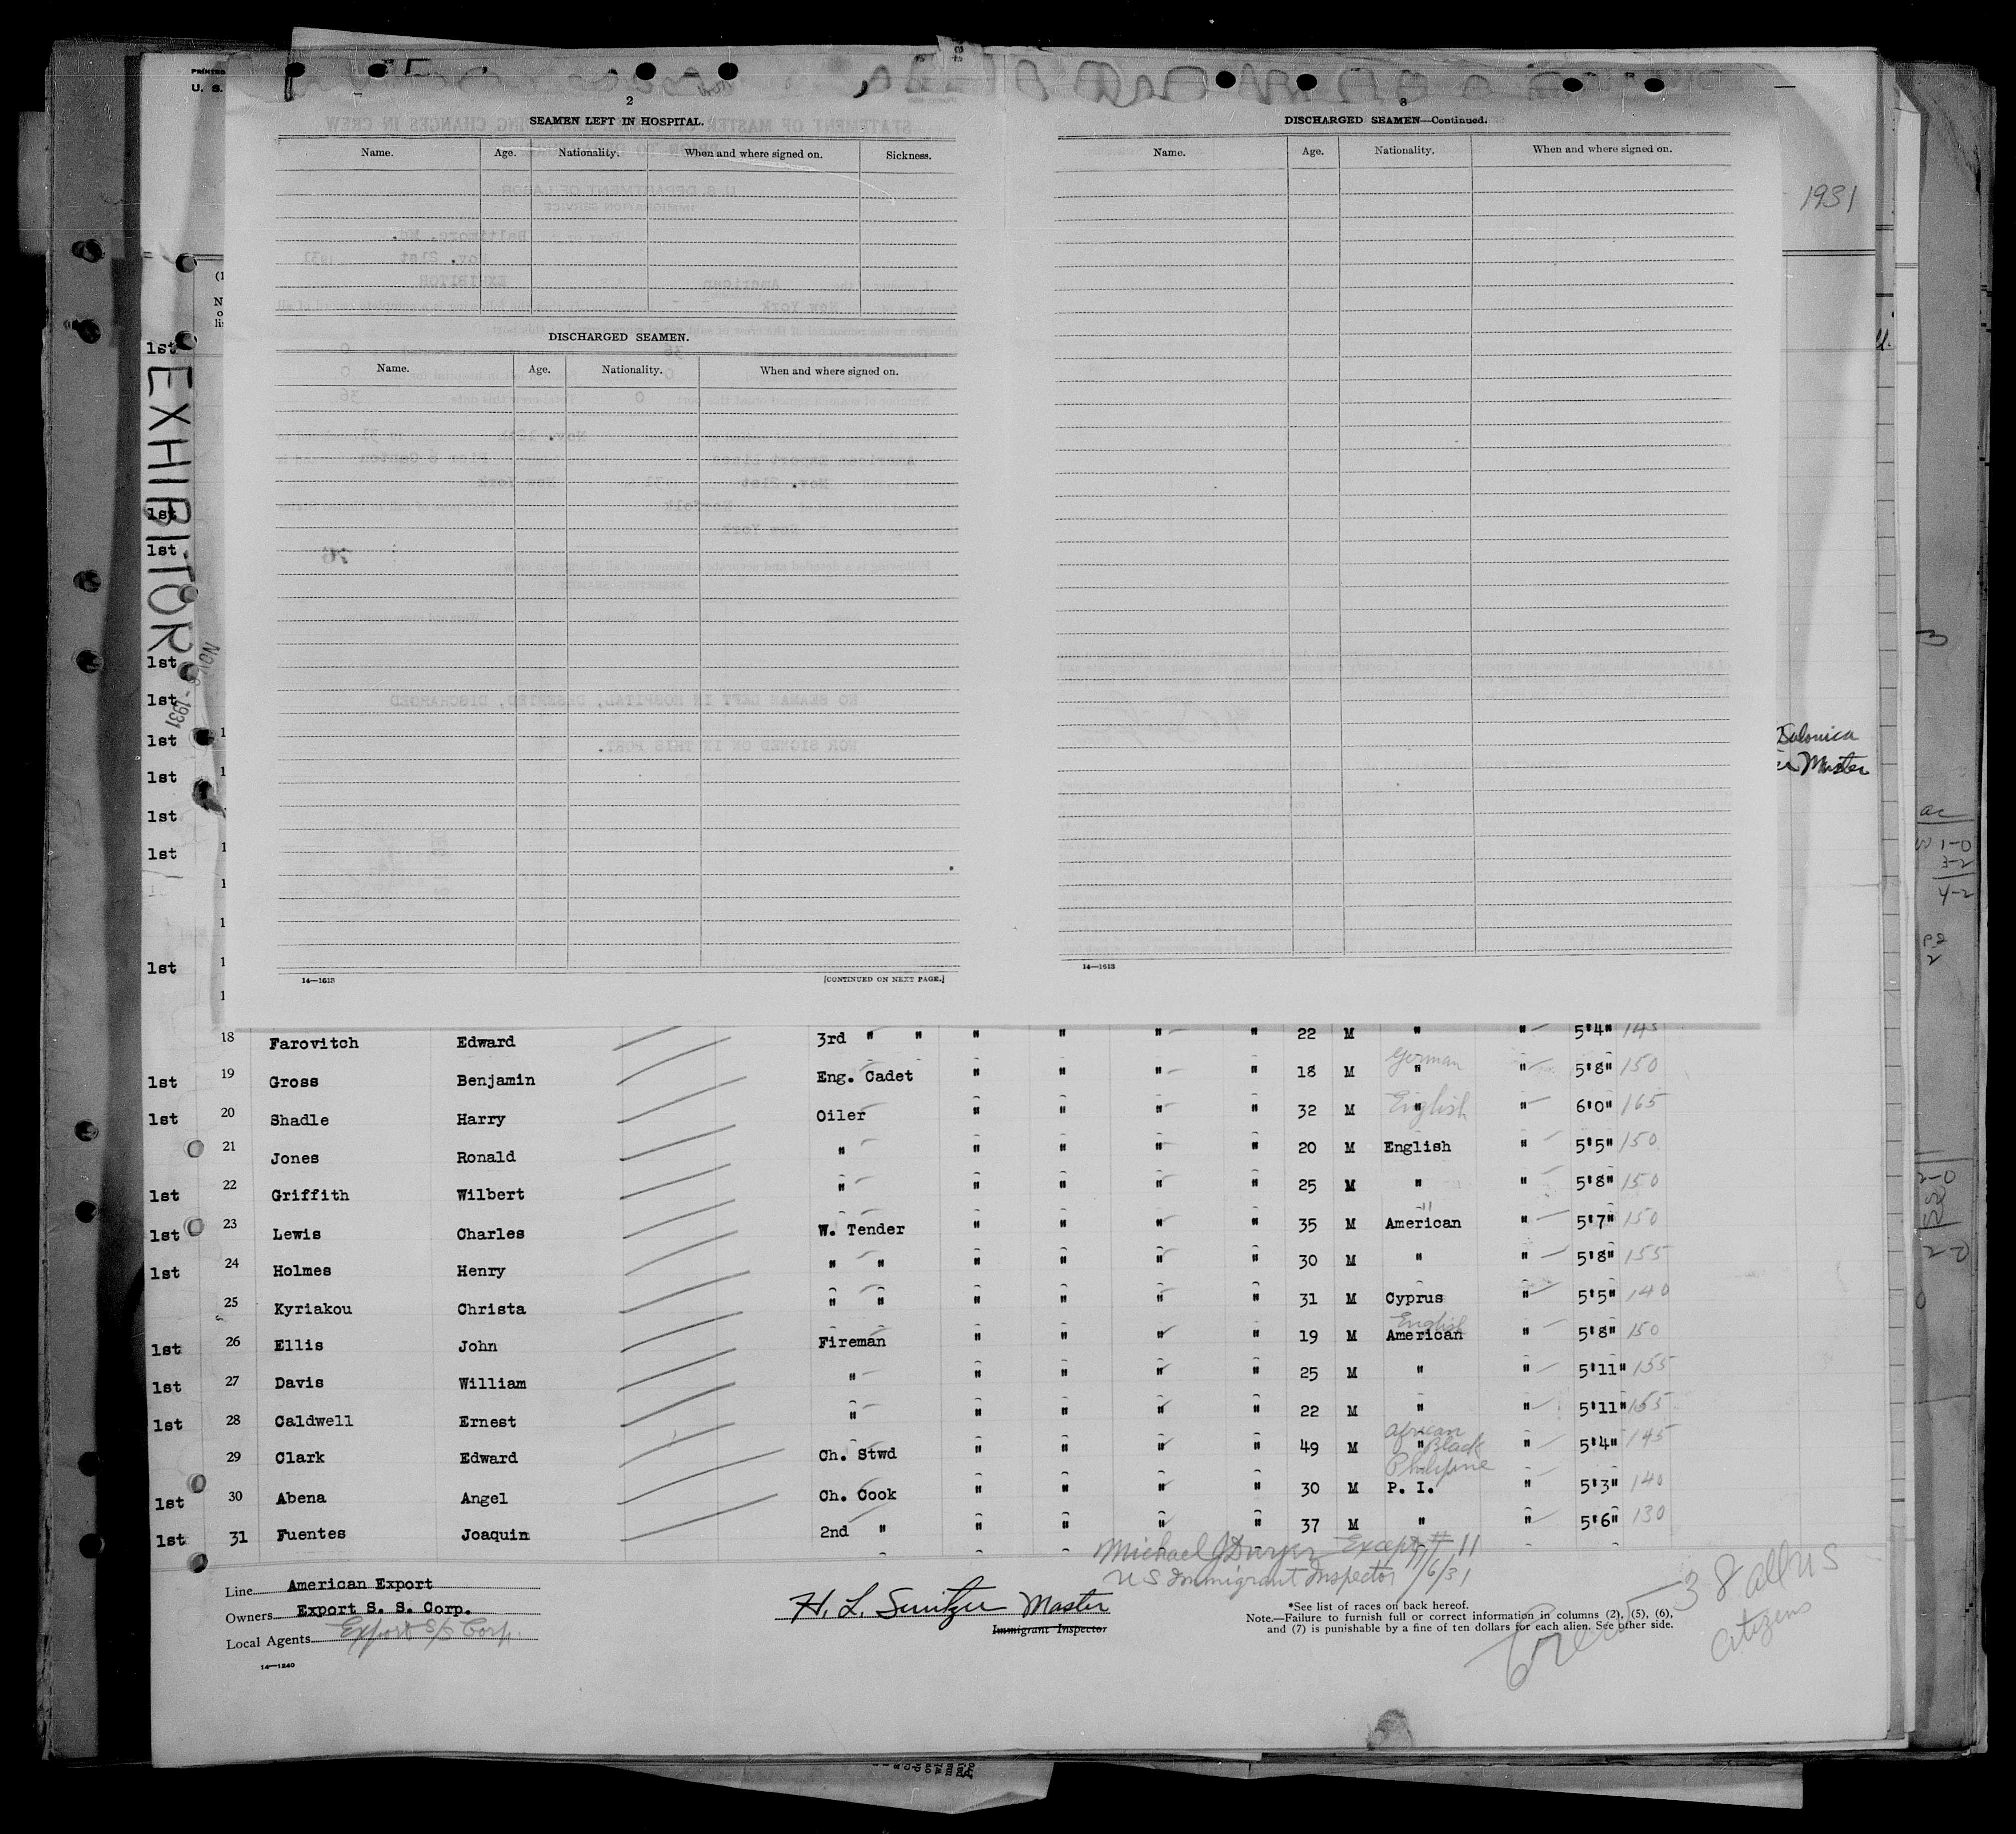 PRINTED
U. S.
2
SEAMEN LEFT IN HOSPITAL.
Name. Age. Nationality. When and where signed on. Sickness.
DISCHARGED SEAMEN.
Name. Age. Nationality. When and where signed on.
14—1613 [CONTINUED ON NEXT PAGE.]
3
DISCHARGED SEAMEN—Continued.
Name. Age. Nationality. When and where signed on.
14—1613
1931
EXHIBITOR
NOV 6 - 1931
1st
1st
1st
1st
1st
1st
1st
1st
1st
1st
Salonica
Master
18 Farovitch Edward 3rd " " " " " " 22 M " " 5'4" 145
1st 19 Gross Benjamin Eng. Cadet " " " " 18 M German " " 5'8" 150
1st 20 Shadle Harry Oiler " " " " 32 M English " " 6'0" 165
21 Jones Ronald " " " " " 20 M English " 5'5" 150
1st 22 Griffith Wilbert " " " " " 25 M " " 5'8" 150
1st 23 Lewis Charles W. Tender " " " " 35 M American " 5'7" 150
1st 24 Holmes Henry " " " " " " 30 M " " 5'8" 155
25 Kyriakou Christa " " " " " " 31 M Cyprus " 5'5" 140
1st 26 Ellis John Fireman " " " " 19 M English American " 5'8" 150
1st 27 Davis William " " " " " 25 M " " 5'11" 155
1st 28 Caldwell Ernest " " " " " 22 M " " 5'11" 155
29 Clark Edward Ch. Stwd " " " " 49 M African " Black " 5'4" 145
1st 30 Abena Angel Ch. Cook " " " " 30 M Philipine P. I. " 5'3" 140
1st 31 Fuentes Joaquin 2nd " " " " " 37 M " " 5'6" 130
Michael J Except # 11
US Immigrant Inspector 11/6/31
Line American Export
Owners Export S. S. Corp.
Local Agents Export S/S Corp.
14—1240
H. L. Master
Immigrant Inspector
*See list of races on back hereof.
Note.—Failure to furnish full or correct information in columns (2), (5), (6),
and (7) is punishable by a fine of ten dollars for each alien. See other side.
38 all US
Citizens